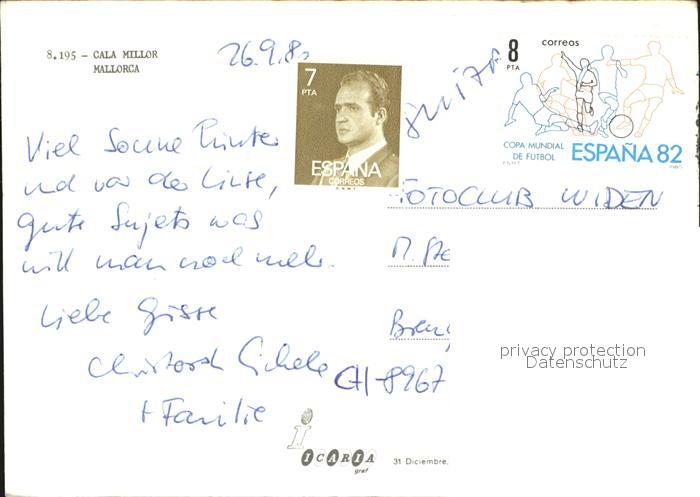 8.195 - CALA MILLOR
MALLORCA
26.9.82
7
PTA
ESPAÑA
CORREOS
F.N.M.T.
8
PTA
correos
COPA MUNDIAL
DE FUTBOL
ESPAÑA 82
Viel Sonne hinter
und vor der Linse,
gute Sujets was
will man noch mehr.
Liebe Grüsse
Christoph
+ Familie
FOTOCLUB WIDEN
M. Ste
CH-8967
privacy protection
Datenschutz
ICARIA
graf
31 Diciembre,